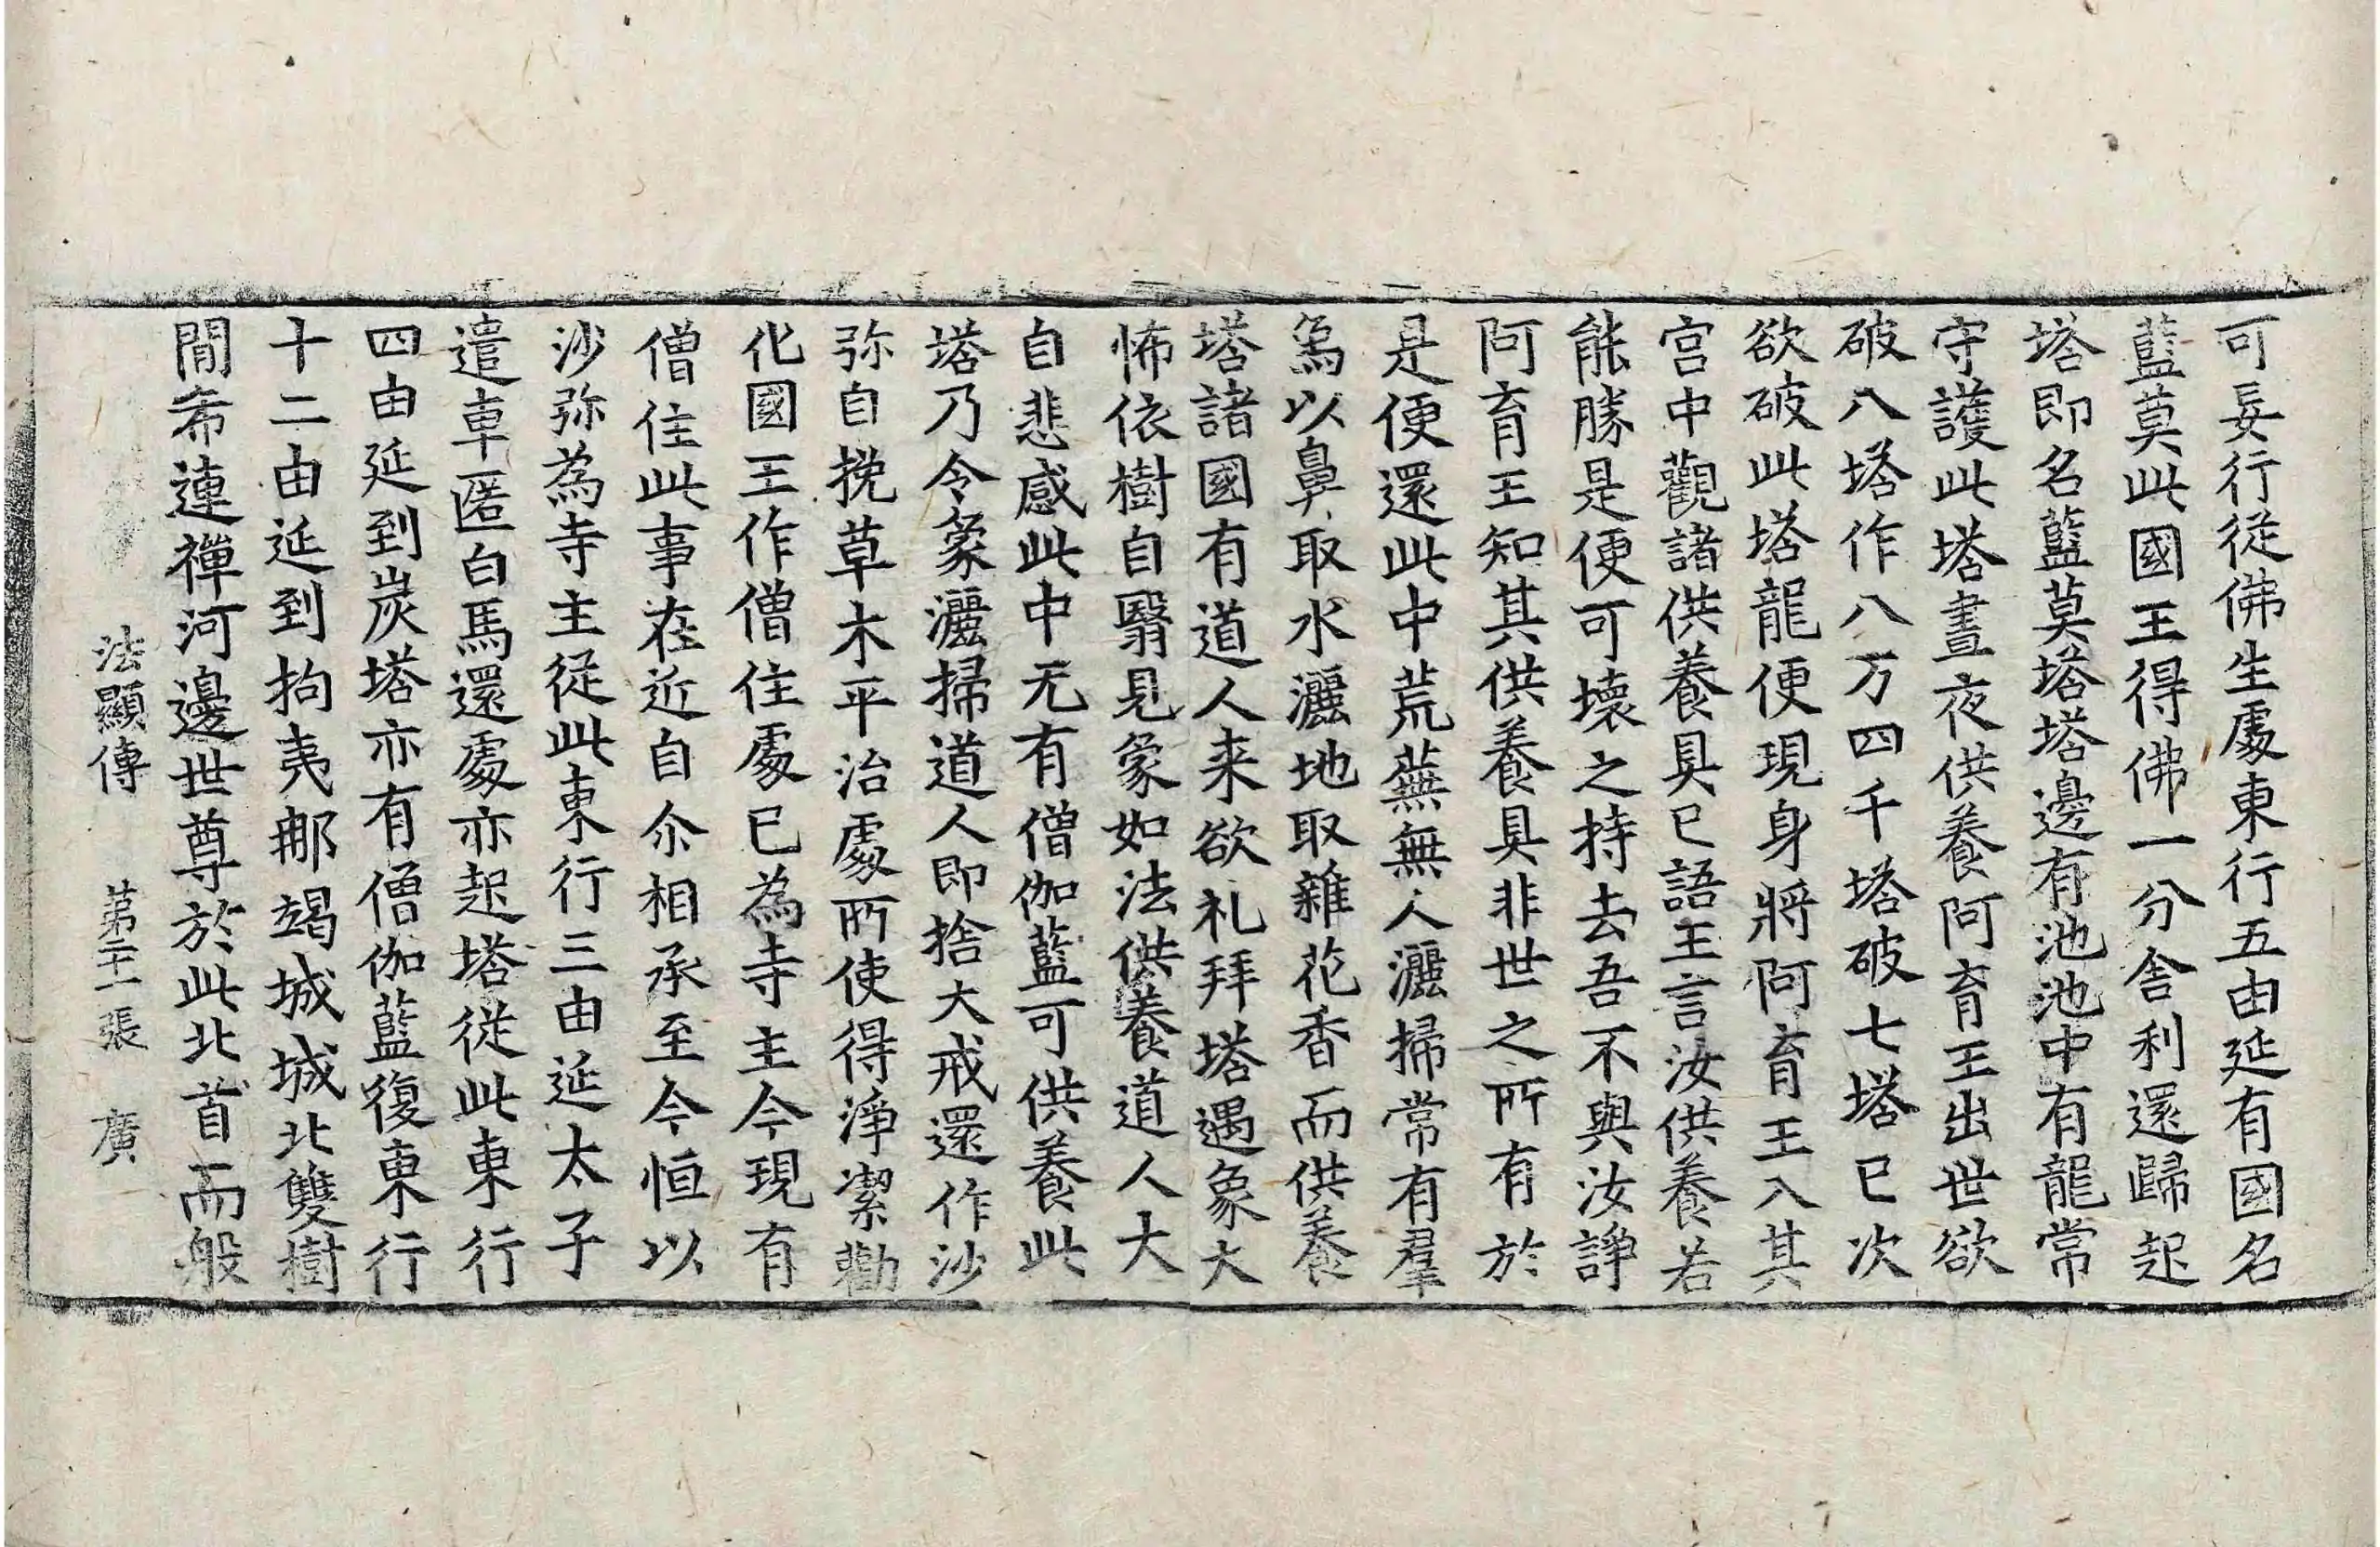 可妄行從佛生處東行五由延有國名
藍莫此國王得佛一分舍利還歸起
塔即名藍莫塔塔邊有池池中有龍常
守護此塔晝夜供養阿育王出世欲
破八塔作八万四千塔破七塔已次
欲破此塔龍便現身將阿育王入其
宮中觀諸供養具已語王言汝供養若
能勝是便可壞之持去吾不與汝諍
阿育王知其供養具非世之所有於
是便還此中荒蕪無人灑掃常有羣
象以鼻取水灑地取雜花香而供養
塔諸國有道人来欲礼拜塔遇象大
怖依樹自翳見象如法供養道人大
自悲感此中无有僧伽藍可供養此
塔乃令象灑掃道人即捨大戒還作沙
弥自挽草木平治處所使得淨潔勸
化國王作僧住處已為寺主今現有
僧住此事在近自尒相承至今恒以
沙弥為寺主從此東行三由延太子
遣車匿白馬還處亦起塔從此東行
四由延到炭塔亦有僧伽藍復東行
十二由延到拘夷那竭城城北雙樹
間希連禪河邊世尊於此北首而般
法顯傳 第二十一張 廣